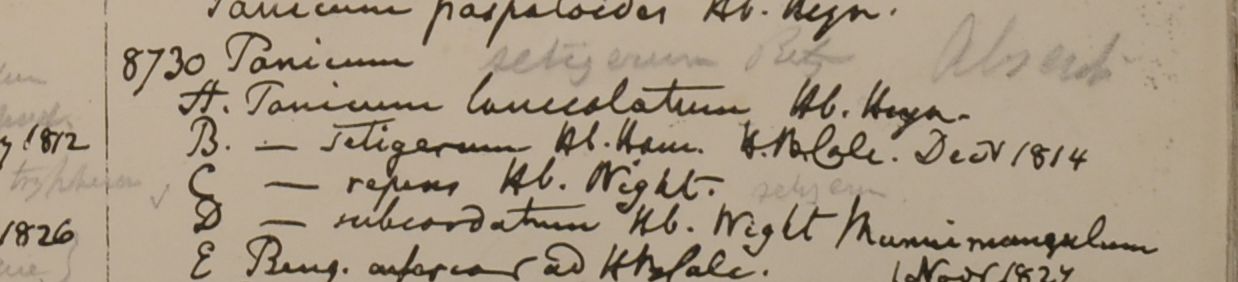 Panicum paspaloides Hb. Heyn.
8730 Panicum setigerum Retz Absent
A. Panicum lanceolatum Hb. Heyn.
y 1812 B. — setigerum Hb. Ham. H.B.Calc. Decr 1814
C — repens Hb. Wight. setigerum
D — subcordatum Hb. Wight
1826
E Beng. ad HBCalc. Novr 1824